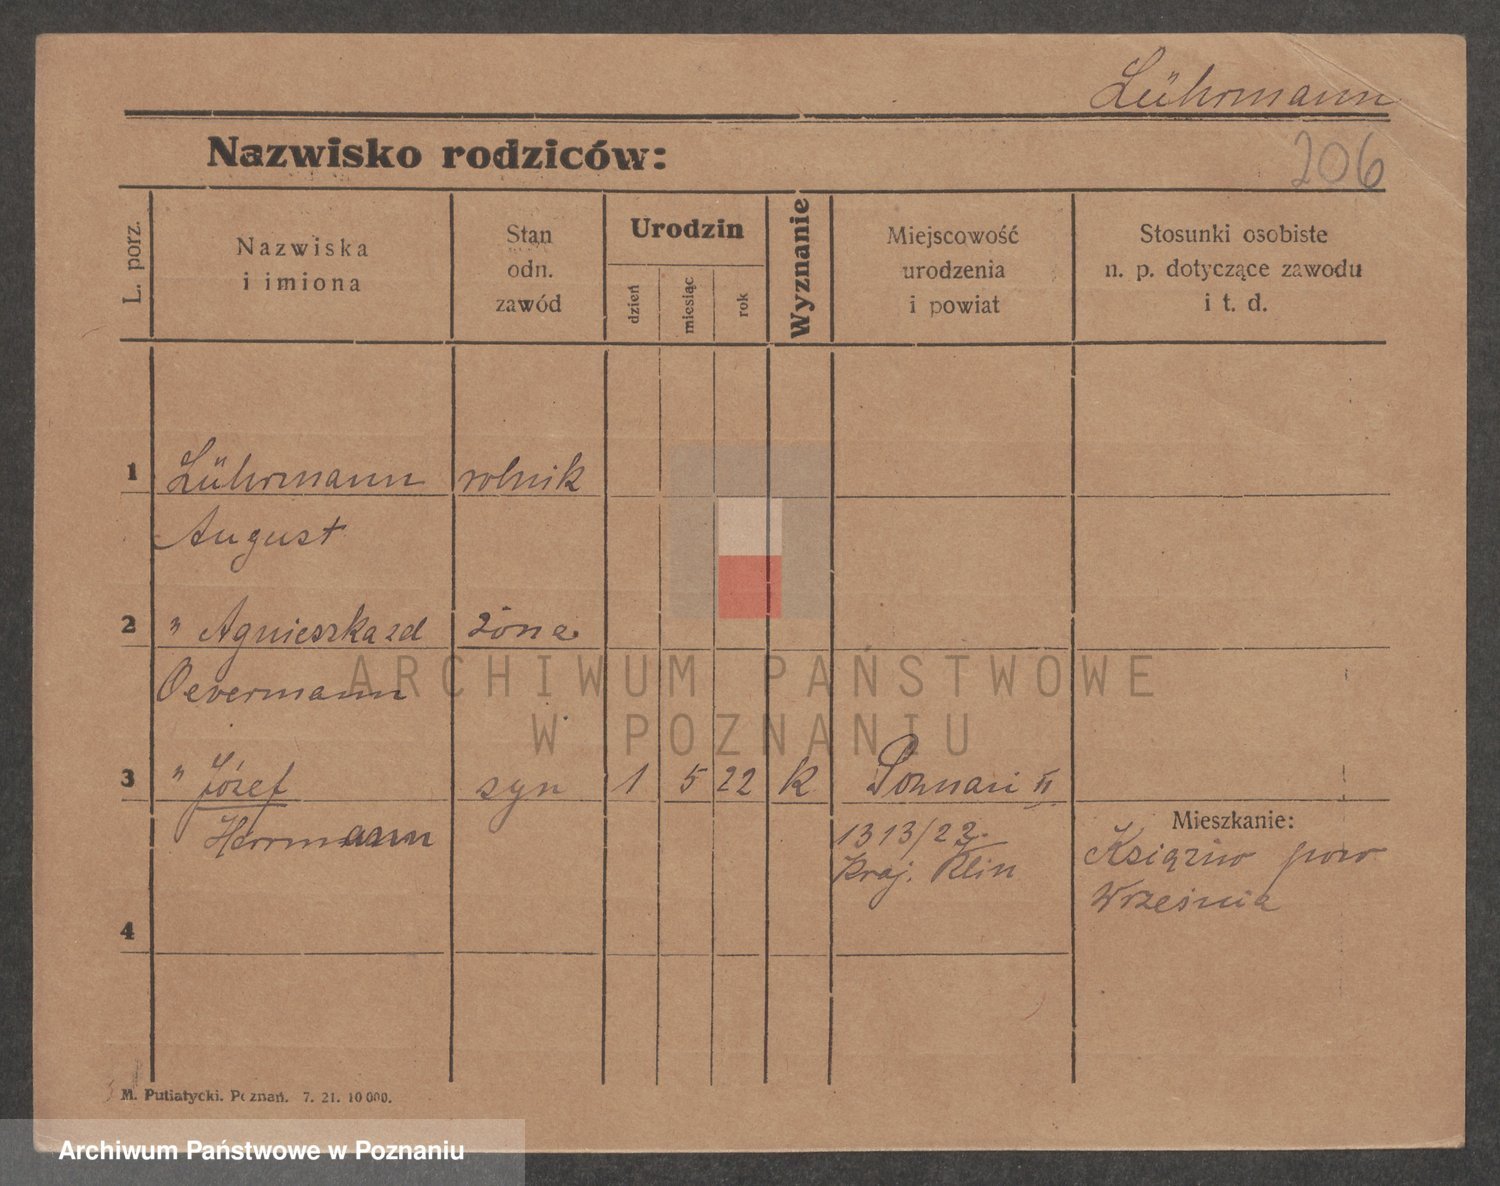 Lührmann
Nazwisko rodziców:
206
L. porz.
Nazwiska
i imiona
Stan
odn.
zawód
Urodzin
dzień
miesiąc
rok
Wyznanie
Miejscowość
urodzenia
i powiat
Stosunki osobiste
n. p. dotyczące zawodu
i t. d.
1 Lührmann rolnik
August
2 " Agnieszka zd żona
Oevermann
ARCHIWUM PAŃSTWOWE
W POZNANIU
3 " Józef syn 1 5 22 k Poznań II
Herrmann
1313/22.
Kraj. Klin
Mieszkanie:
Książno pow
Września
4
M. Putiatycki. Poznań. 7. 21. 10 000.
Archiwum Państwowe w Poznaniu